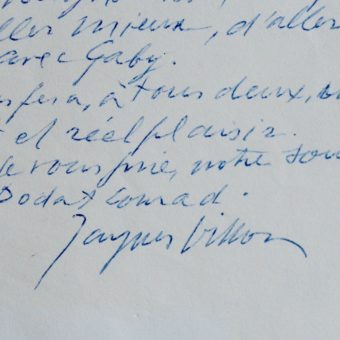 aller mieux, d'aller
avec Gaby.
fera, à tous deux, un
et réel plaisir.
Je vous prie, notre
Jacques Villon